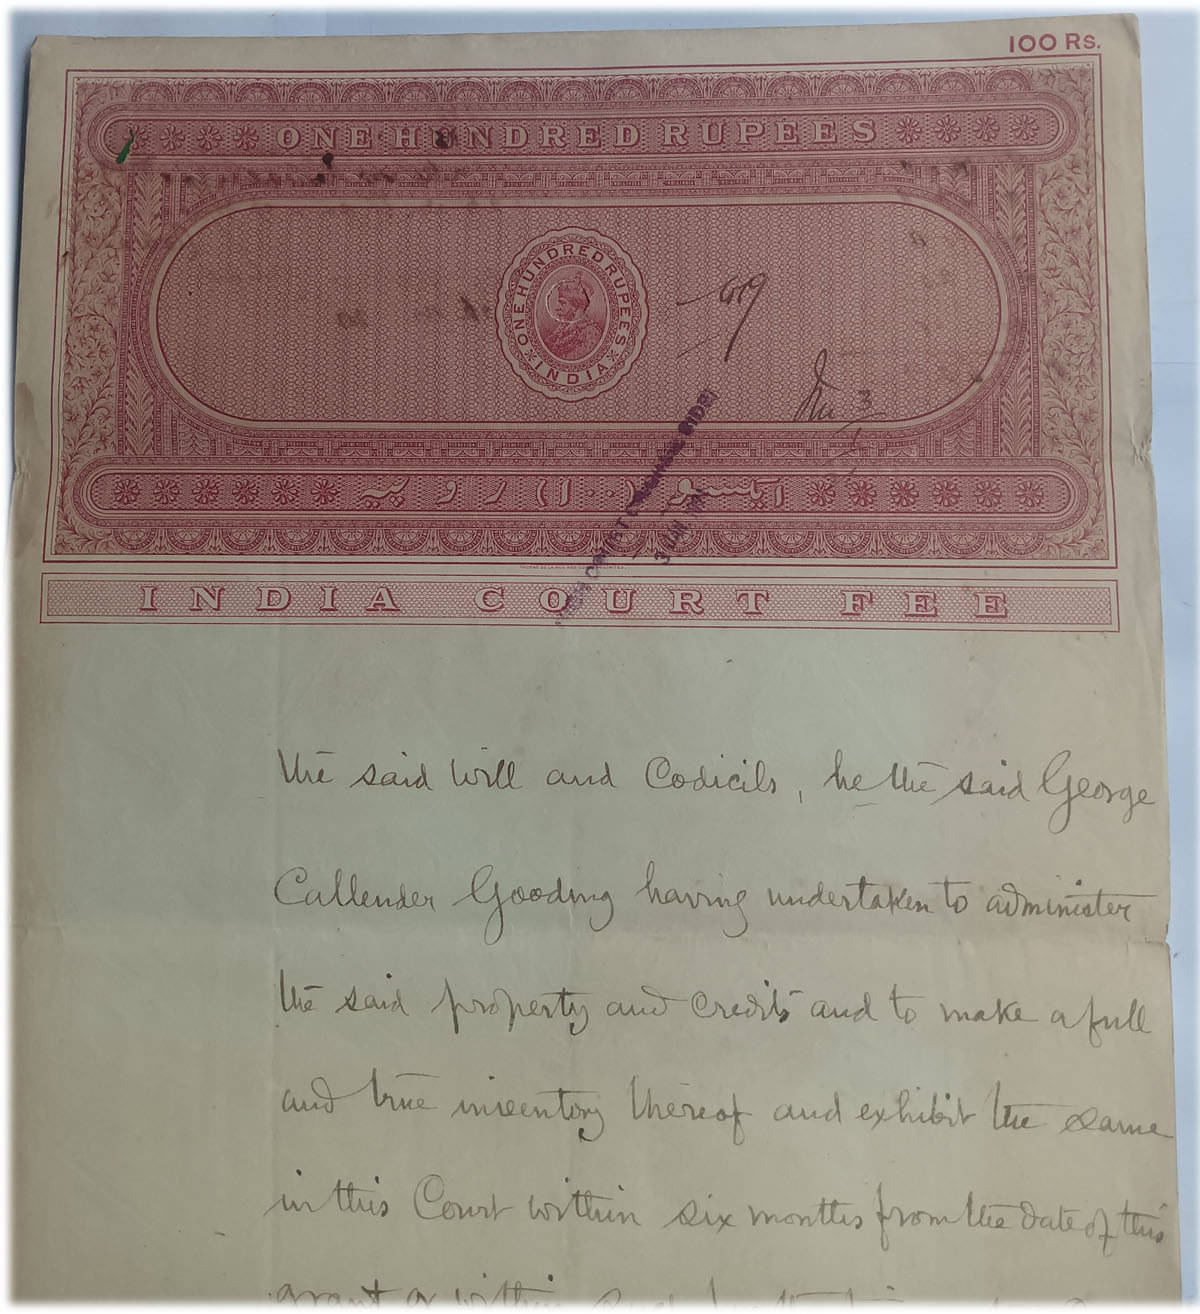 100 RS.
ONE HUNDRED RUPEES
ONE HUNDRED RUPEES
INDIA
419
ایکسو (۱۰۰) روپیہ
3 JAN
INDIA COURT FEE
the said Will and Codicils, he the said George
Callender Gooding having undertaken to administer
the said property and credits and to make a full
and true inventory thereof and exhibit the same
in this Court within six months from the date of this
grant or within such